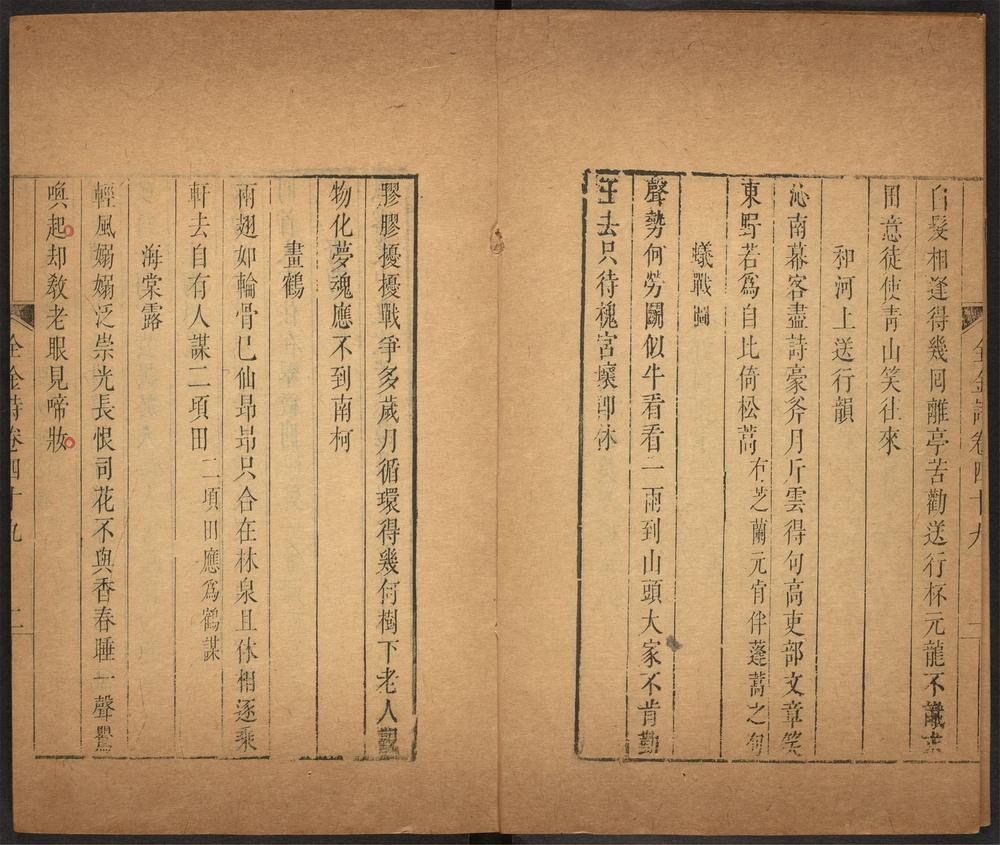 全金詩卷四十九 二
白髮相逢得幾囘離亭苦勸送行杯元龍不識求
田意徒使靑山笑往來
和河上送行韻
沁南幕客盡詩豪斧月斤雲得句高吏部文章笑
東野若爲自比倚松蒿 有芝蘭元肯伴蓬蒿之句
蟻戰圖
聲勢何勞鬭似牛看看一雨到山頭大家不肯勤
王去只待槐宮壞卽休
膠膠擾擾戰爭多歲月循環得幾何樹下老人觀
物化夢魂應不到南柯
畫鶴
兩翅如輪骨已仙昻昻只合在林泉且休相逐乘
軒去自有人謀二項田 二項田應爲鶴謀
海棠露
輕風嫋嫋泛崇光長恨司花不與香春睡一聲鶯
喚起却敎老眼見啼妝
全金詩卷四十九 二